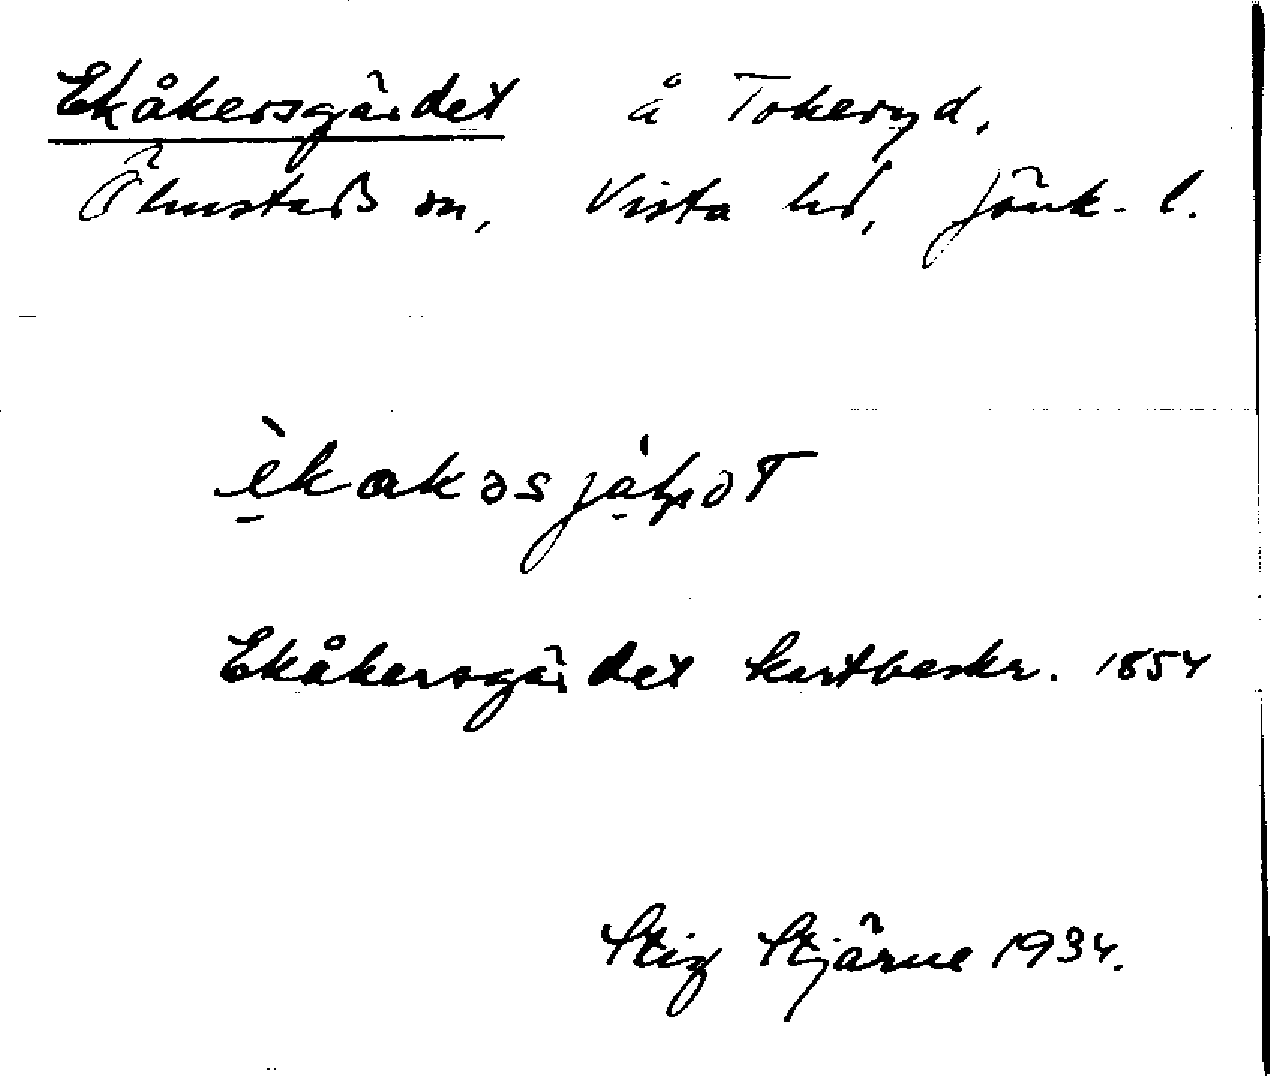 Ekåkersgärdet å Tokeryd,
Ölmstads sn, Vista hd, Jönk. l.
Ekåkersgärdet kartbeskr. 1854
Stig Stjärne 1934.